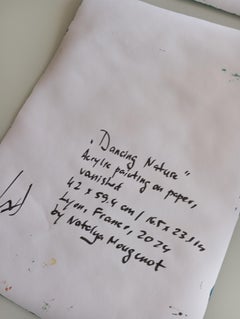 „Dancing Nature"
Acrylic painting on paper,
vanished
42 x 59,4 cm / 16.5 x 23.4 in
Lyon, France, 2024
by Natalya Mougenot